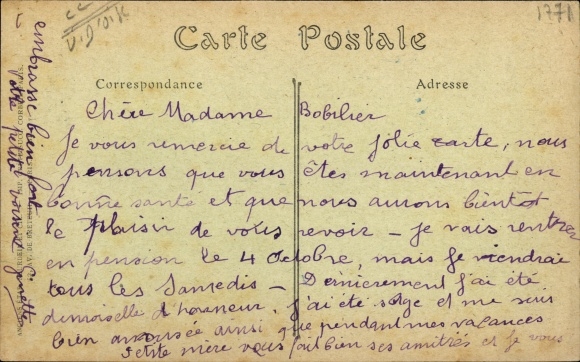 1771
Carte Postale
Correspondance
Adresse
Chère Madame Bobilier
Je vous remercie de votre jolie carte, nous
pensons que vous êtes maintenant en
bonne santé et que nous aurons bientôt
le plaisir de vous revoir - je vais rentrer
en pension le 4 octobre, mais je viendrai
tous les Samedis - Dernièrement j'ai été
demoiselle d'honneur, j'ai été sage et me suis
bien amusée ainsi que pendant mes vacances
Petite mère vous fait bien ses amitiés et je vous
embrasse bien fort
votre petite voisine Ginette